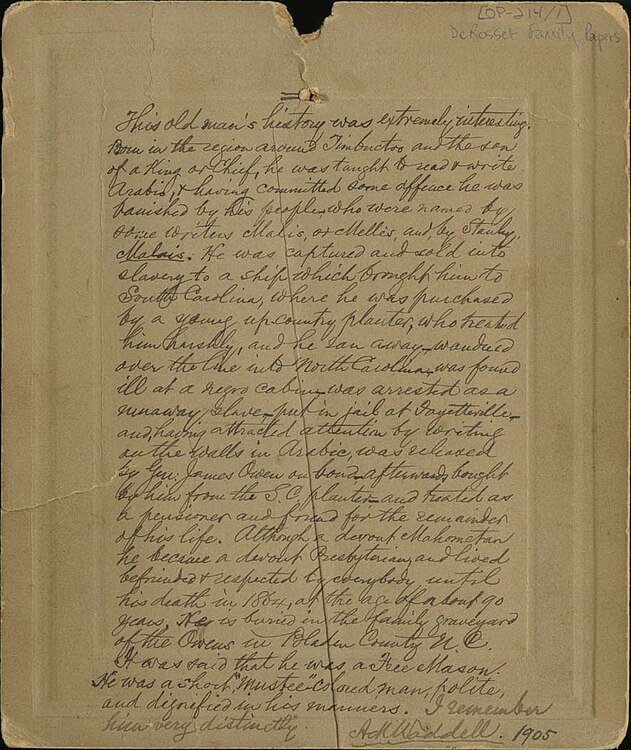 [OP-214/1]
DeRosset Family Papers
This old man's history was extremely interesting.
Born in the region around Timbuctoo and the son
of a King or Chief, he was taught to read & write
Arabic, & having committed some offence he was
banished by his people who were named by
some writers Malis, or Mellis, and, by Stanley,
Malais. He was captured and sold into
slavery to a ship which brought him to
South Carolina, where he was purchased
by a young upcountry planter, who treated
him harshly, and he ran away—wandered
over the line into North Carolina—was found
ill at a negro cabin—was arrested as a
runaway slave—put in jail at Fayetteville—
and, having attracted attention by writing
on the walls in Arabic, was released
by Gen: James Owen on bond—afterwards bought
by him from the S.C. planter—and treated as
a pensioner and friend for the remainder
of his life. Although a devout Mahometan
he became a devout Presbyterian, and lived
befriended & respected by everybody until
his death in 1864, at the age of about 90
years. He is buried in the family graveyard
of the Owens in Bladen County N. C.
It was said that he was a Free Mason.
He was a short, "Mustee" colored man, polite,
and dignified in his manners. I remember
him very distinctly.
A M Waddell. 1905